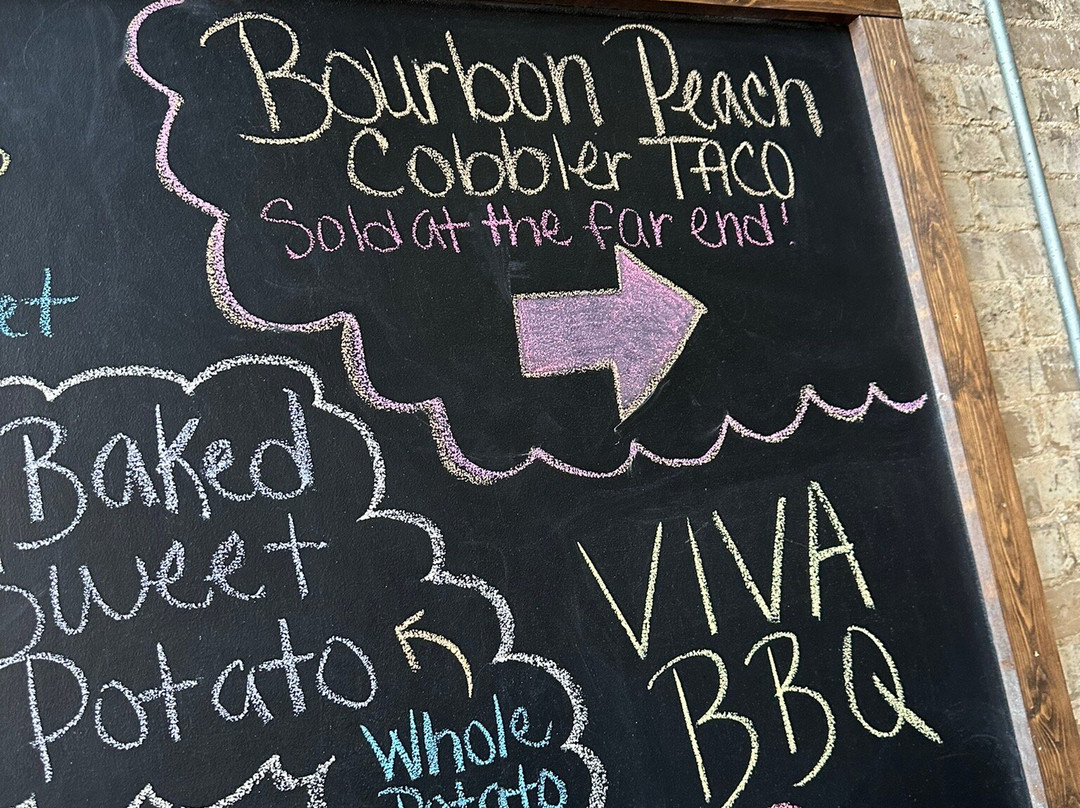 Bourbon Peach
Cobbler TACO
Sold at the far end!
et
Baked
Sweet
Potato
Whole
Potato
VIVA
BBQ